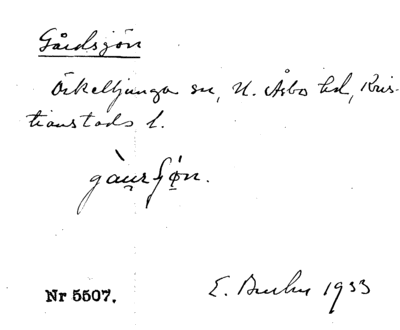 Gårdsjön
Örkelljunga sn, N. Åsbo hd, Kris-
tianstads l.
Nr 5507.
E. 1933